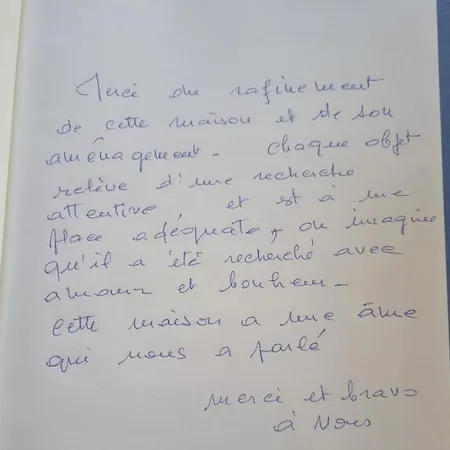 Merci du rafinement
de cette maison et de son
aménagement - chaque objet
relève d'une recherche
attentive et est à une
place adéquate, on imagine
qu'il a été recherché avec
amour et bonheur -
cette maison a une âme
qui nous a parlé
Merci et bravo
à Vous